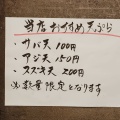 当店お付め天ぷら
・サバ天 100円
・アジ天 150円
・スズキ天 200円
※数量限定となります